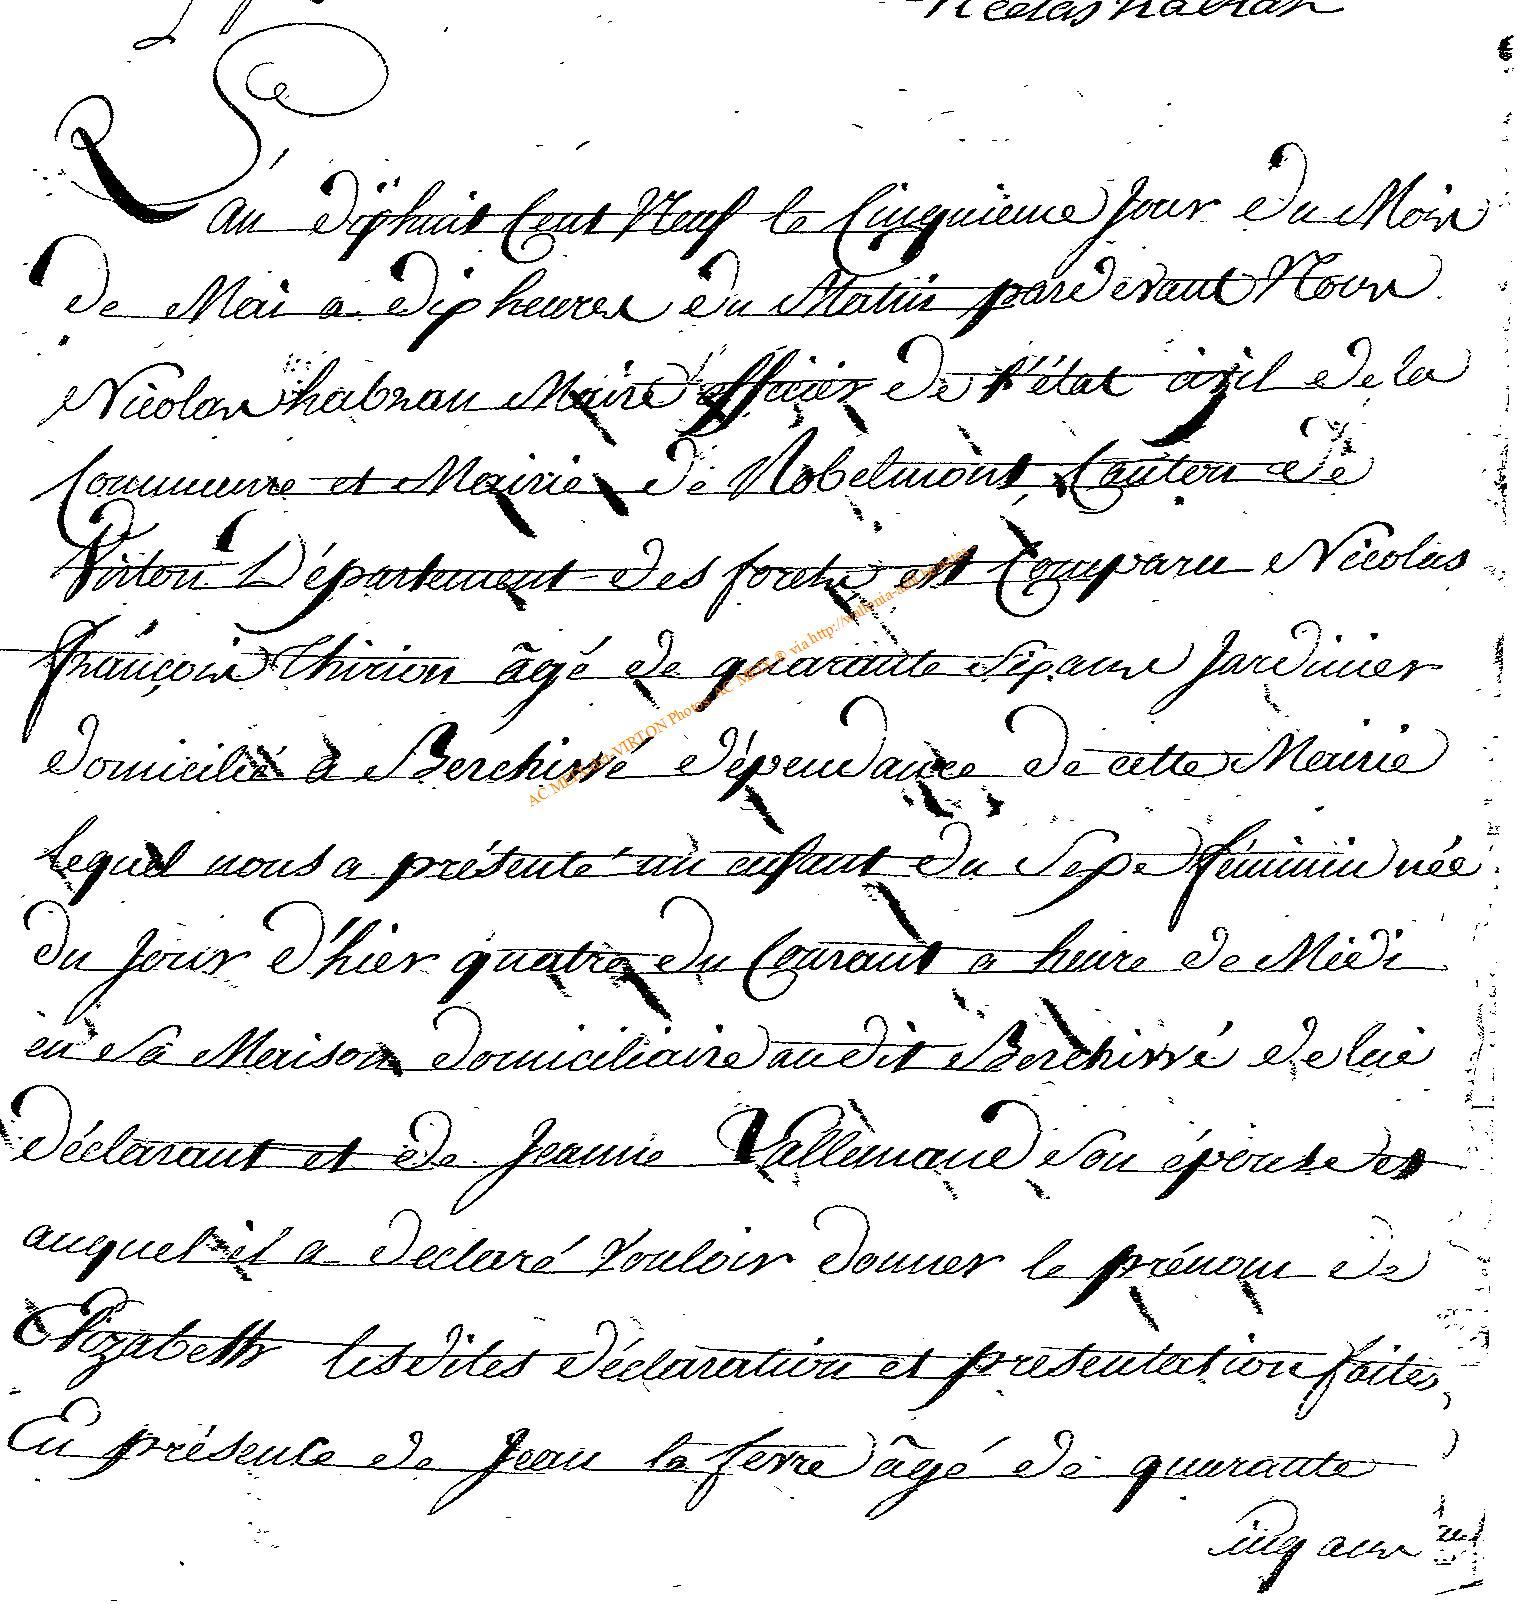 Nicolas habran
L'an dixhuit Cent Neuf le Cinquieme Jour du Mois
de Mai a dix heures du Matin pardevant Nous
Nicolas habran Maire officier de l'état civil de la
Commune et Mairie de Robelmont, Canton de
Virton Département des forêts est Comparu Nicolas
françois Thirion âgé de quarante Six ans Jardinier
domicilié à Berchivé dépendance de cette Mairie
lequel nous a présenté un enfant du Sexe féminin née
du Jour d'hier quatre du Courant a heure de Midi
en Sa Maison domiciliaire audit Berchivé de lui
déclarant et de Jeanne Vallemand Son épouse et
auquel il a declaré Vouloir donner le prénom de
Elizabeth lesdites déclaration et presentation faites,
En présence de Jean le fevre âgé de quarante
cinq ans
AC MEIX-DT-VIRTON Photos: AC MEIX ® via http://wallonia-asbl